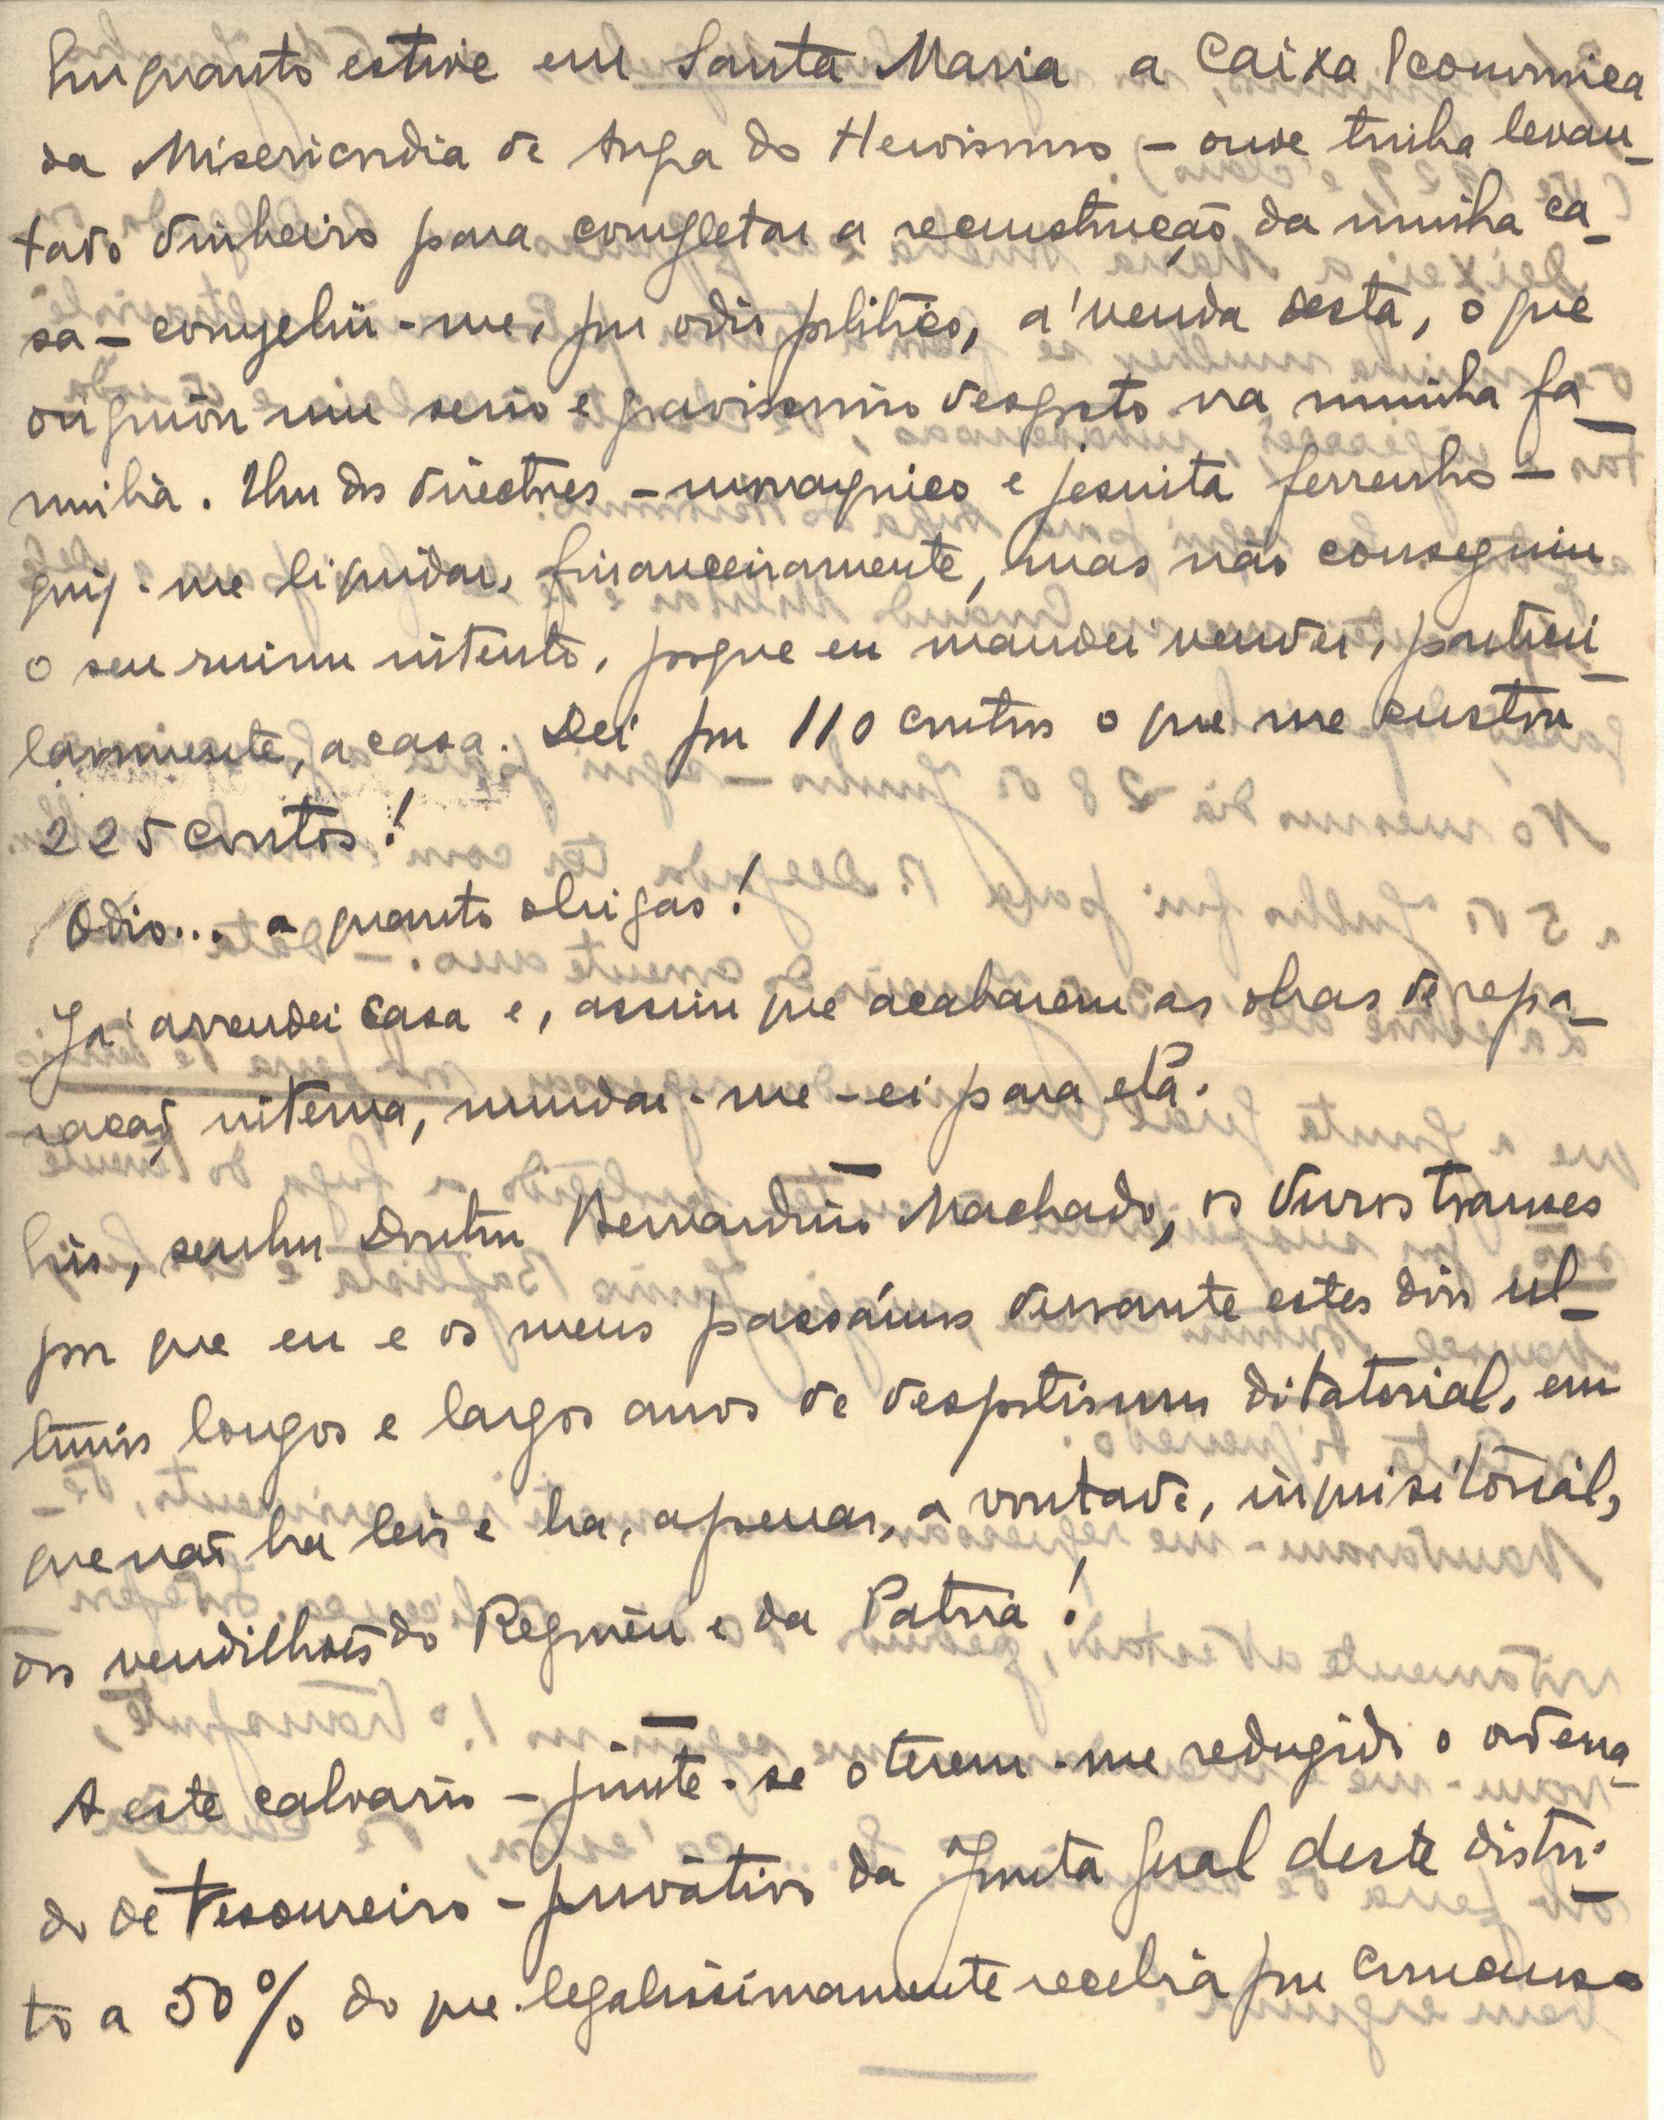 Enquanto estive em Santa Maria a Caixa Economica
da Misericordia de Angra do Heroismo - onde tinha levan-
tado dinheiro para completar a reconstrução da minha ca-
sa - compeliu-me, por odio politico, á venda desta, o que
originou um serio e gravissimo desgosto na minha fa-
milia. Um dos directores - monarquico e jesuita ferrenho -
quiz-me liquidar, financeiramente, mas não conseguiu
o seu ruim intento, porque eu mandei vender, particu-
larmente, a casa. Dei por 110 contos o que me custou
225 contos!
Odio... a quanto obrigas!
Já arrendei casa e, assim que acabarem as obras de repa-
ração interna, mudar-me-ei para ela.
Eis, senhor Doutor Bernardino Machado, os duros transes
por que eu e os meus passámos durante estes dois ul-
timos longos e largos anos de despotismo ditatorial, em
que não ha leis e ha, apenas, a vontade, inquisitorial,
dos vendilhões do Regimen e da Patria!
A este calvario - junte-se o terem-me reduzido o ordena-
do de tesoureiro-privativo da Junta Geral deste distri-
to a 50% do que legalissimamente recebia por concurso